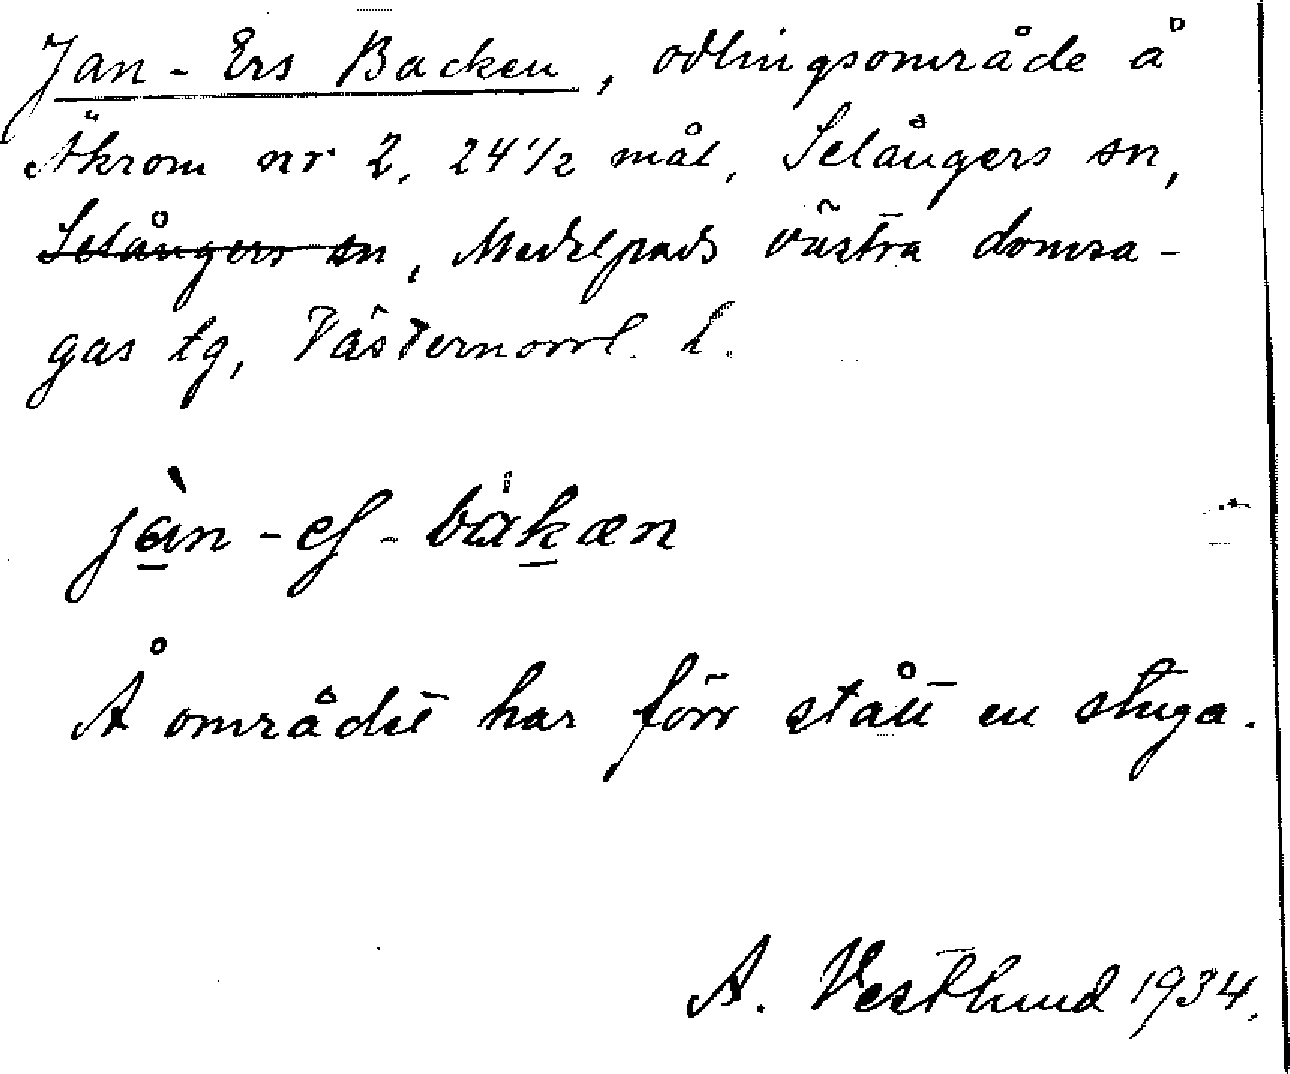 Jan-Ers Backen, odlingsområde å
Äkrom nr 2, 24 1/2 mål, Selångers sn,
Selångers sn, Medelpads västra domsa-
gas tg, Västernorrl. l.
jàn-eʃ-bákæn
Å området har förr stått en stuga.
A. Vestlund 1934.